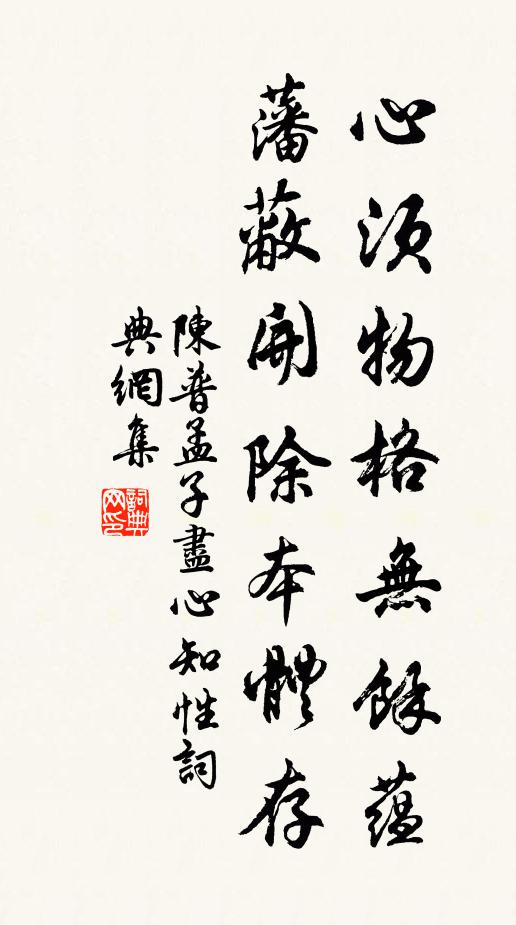 心須物格無餘蘊
藩蔽開除本體存
陳普孟子盡心知性詞
典網集
詞典网印